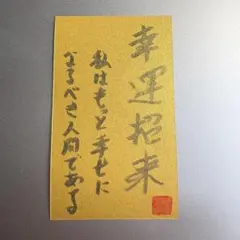 幸運招来
私はもっと幸せに
なるべき人間である